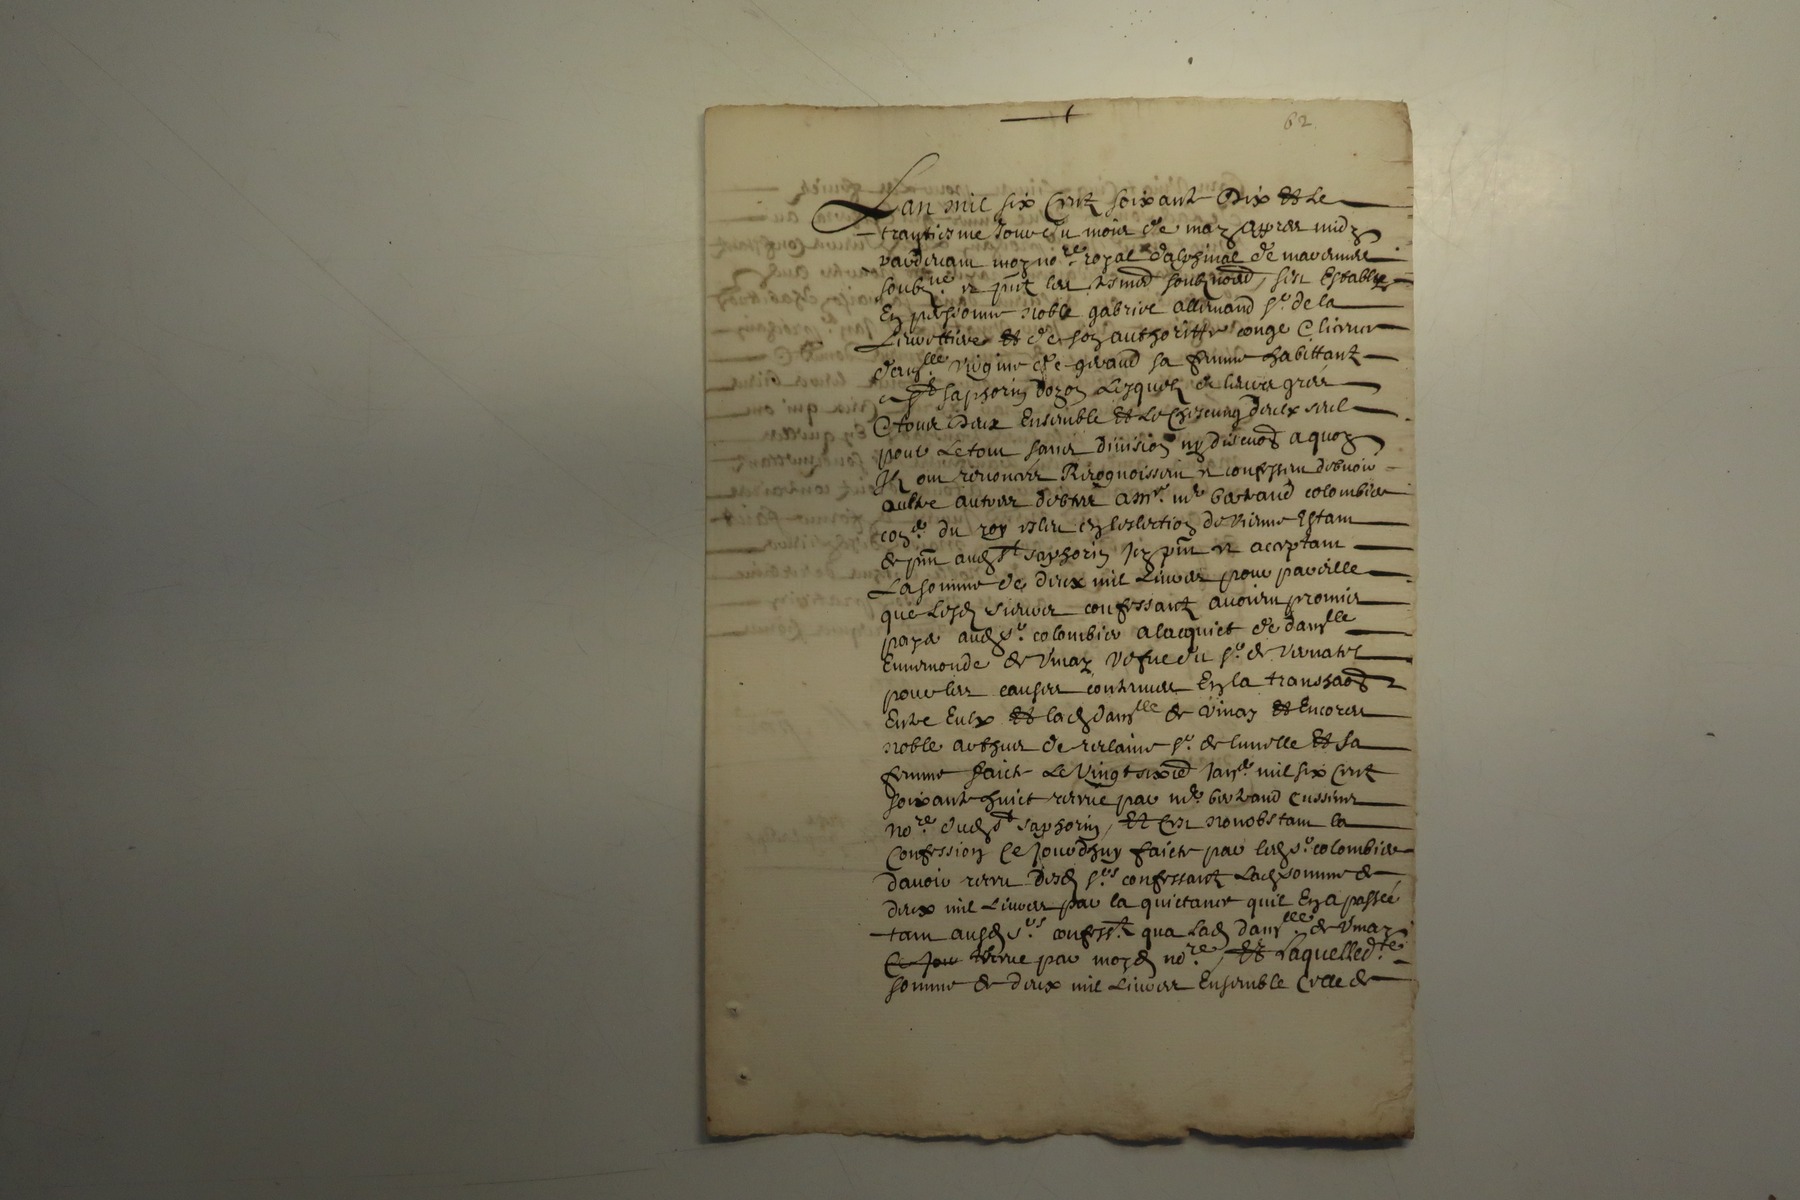 62
Lan mil six centz soixante dix et le
trantiesme jour du mois de may appres midy
pardevant moy no.re royal dalphinal de
soub.né et pnt les tesmd soubznod, sest establye
En personne noble gabriel allemand s.r de la
et de son authoritte conge & licence
dam.lle de girard sa femme habittantz
a s.t saphorin dozon Lesquelz de leurs grés
& tous deux Ensemble et le chescung deulx seul
pour le tout sans division ny discuon a quoy
Ilz ont renoncés Recognoissent et confessent debvoir
aultre autres debtes a m.r m.e bertrand colombier
con.er du roy esleu en leslection de vienne Estant
de pnt aud s.t saphorin Icy pnt et acceptant
La somme de deux mil Livres pour pareille
que lesd sieurs confessantz avoient promis
payer aud s.r colombier a lacquict de dam.lle
de Vinay vefve du s.r de
pour les causes contenues En la transaon
Entre Eulx et lad dam.lle de vinay et Encores
noble arthus de s.r de et sa
femme faicte Le vingt sixie Jan.er mil six centz
soixante huict receue par m.e bertrand
no.re dud s.t saphorin, Et Ce nonobstant la
Confession Ce jourdhuy faicte par led s.r colombier
davoir receu desd s.rs confessantz lad somme de
deux mil Livres par la quictance quil En a passée
tant ausd s.rs confess.tz qua lad dam.lle de Vinay
Ce jour receue par moyd no.re, Et Laquelled.te
somme de deux mil Livres Ensemble Celle de